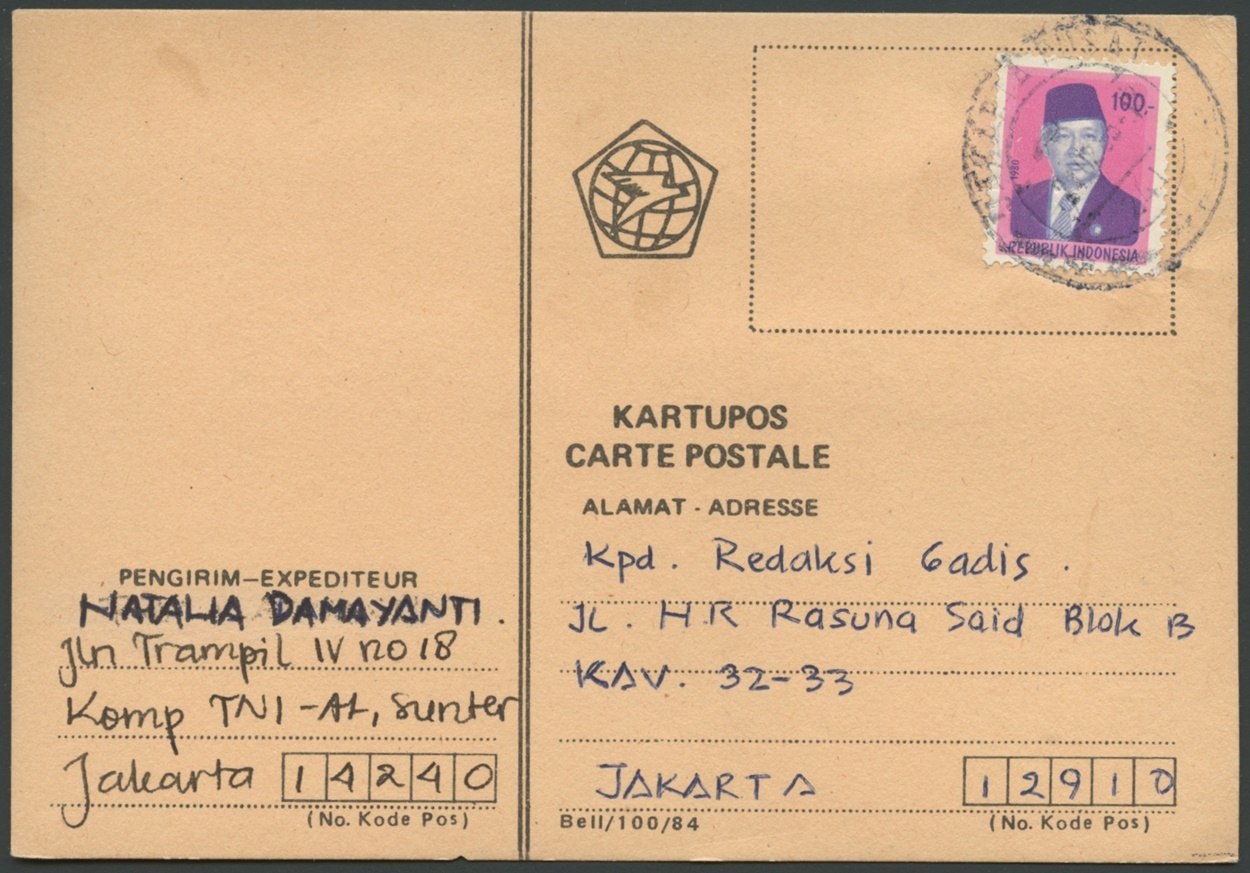 100.-
1980
REPUBLIK INDONESIA
KARTUPOS
CARTE POSTALE
ALAMAT - ADRESSE
Kpd. Redaksi Gadis.
JL. H.R Rasuna Said Blok B
KAV. 32-33
JAKARTA 12910
(No. Kode Pos)
Bell/100/84
PENGIRIM-EXPEDITEUR
NATALIA DAMAYANTI.
Jln Trampil IV no 18
Komp TNI-AL, Sunter
Jakarta 14240
(No. Kode Pos)